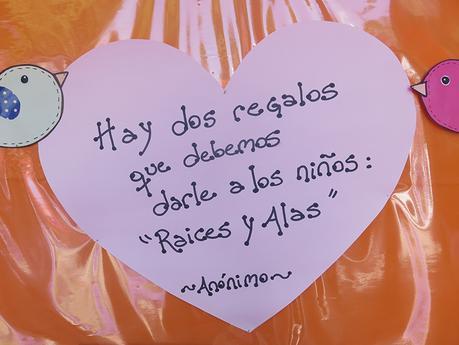 Hay dos regalos
que debemos
darle a los niños:
"Raices y Alas"
~Anónimo~